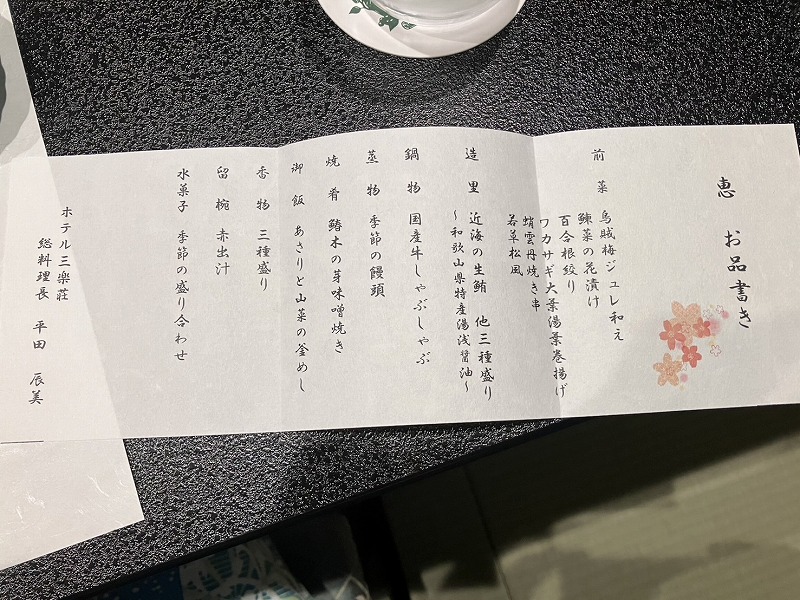 恵 お品書き
前菜 烏賊梅ジュレ和え
鰊菜の花漬け
百合根絞り
ワカサギ大葉湯葉巻揚げ
蛸雲丹焼き串
若草松風
造里 近海の生鮪 他三種盛り
～和歌山県特産湯浅醤油～
鍋物 国産牛しゃぶしゃぶ
蒸物 季節の饅頭
焼肴 鰆木の芽味噌焼き
御飯 あさりと山菜の釜めし
香物 三種盛り
留椀 赤出汁
水菓子 季節の盛り合わせ
ホテル三楽荘
総料理長 平田 辰美